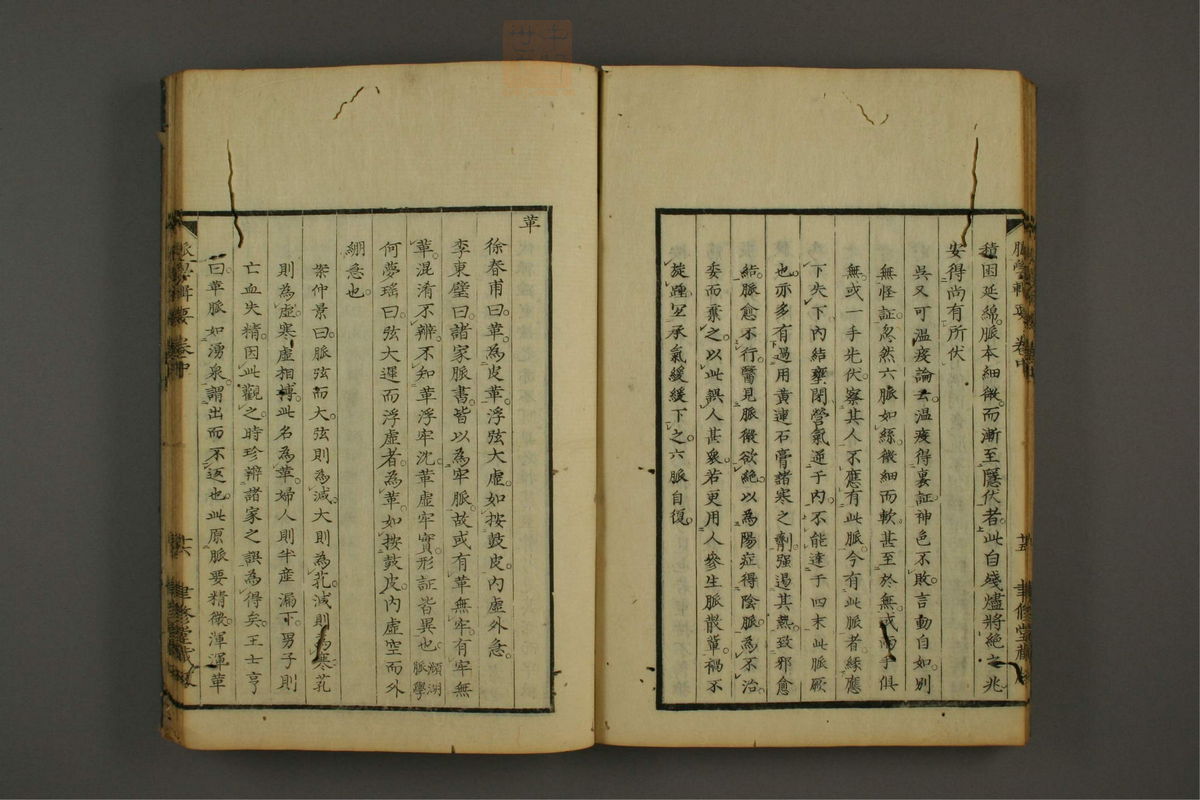 脈學輯要 卷中 十五 聿修堂藏
積困延綿。脈本細微。而漸至隱伏者。此自殘燼將絕之兆
安得尚有所伏
吳又可溫疫論云。溫疫得裏証。神色不敗。言動自如。別
無怪証。忽然六脈如絲。微細而軟。甚至於無。或兩手俱
無。或一手先伏。察其人不應有此脈。今有此脈者。緣應
下失下。內結壅閉。營氣逆于內。不能達于四末。此脈厥
也。亦多有過用黃連石膏諸寒之劑。强遏其熱。致邪愈
結。脈愈不行。醫見脈微欲絕。以為陽症得陰脈。為不治。
委而棄之。以此誤人甚衆。若更用人參生脈散輩。禍不
旋踵。宜承氣緩緩下之。六脈自復。
革
徐春甫曰。革為皮革。浮弦大虛。如按鼓皮。內虛外急。
李東璧曰。諸家脈書。皆以為牢脈。故或有革無牢。有牢無
革。混淆不辨。不知革浮牢沈。革虛牢實。形証皆異也。瀕湖脈學
何夢瑤曰。弦大遲而浮虛者。為革。如按鼓皮。內虛空而外
繃急也。
案仲景曰。脈弦而大。弦則為減。大則為芤。減則為寒。芤
則為虛。寒虛相搏。此名為革。婦人則半產漏下。男子則
亡血失精。因此觀之。時珍辨諸家之誤。為得矣。王士亨
曰。革脈如湧泉。謂出而不返也。此原脈要精微。渾渾革
脈學輯要 卷中 十六 聿修堂藏